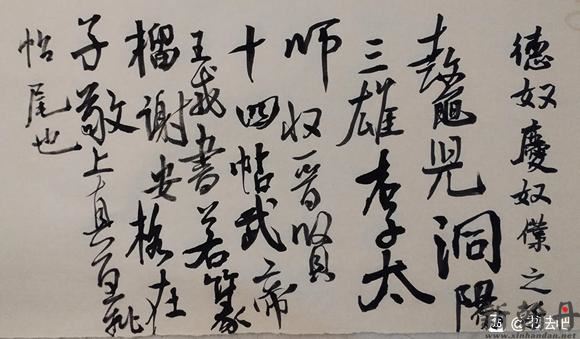 德奴慶奴僕之
鼇兒洞陽
三雄李太
師收晉賢
十四帖武帝
王戎書若篆
籀謝安格在
子敬上真宜批
帖尾也
www.xinhandan.net